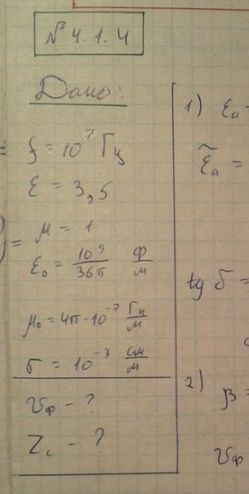 № 4.1.4
Дано:
f = 10⁷ Гц
ε = 3,5
μ = 1
ε₀ = 10⁻⁹/36π Ф/м
μ₀ = 4π·10⁻⁷ Гц/м
σ = 10⁻³ См/м
υф - ?
Zc - ?
1) εa =
ε̃a =
tg δ =
2) β =
υф